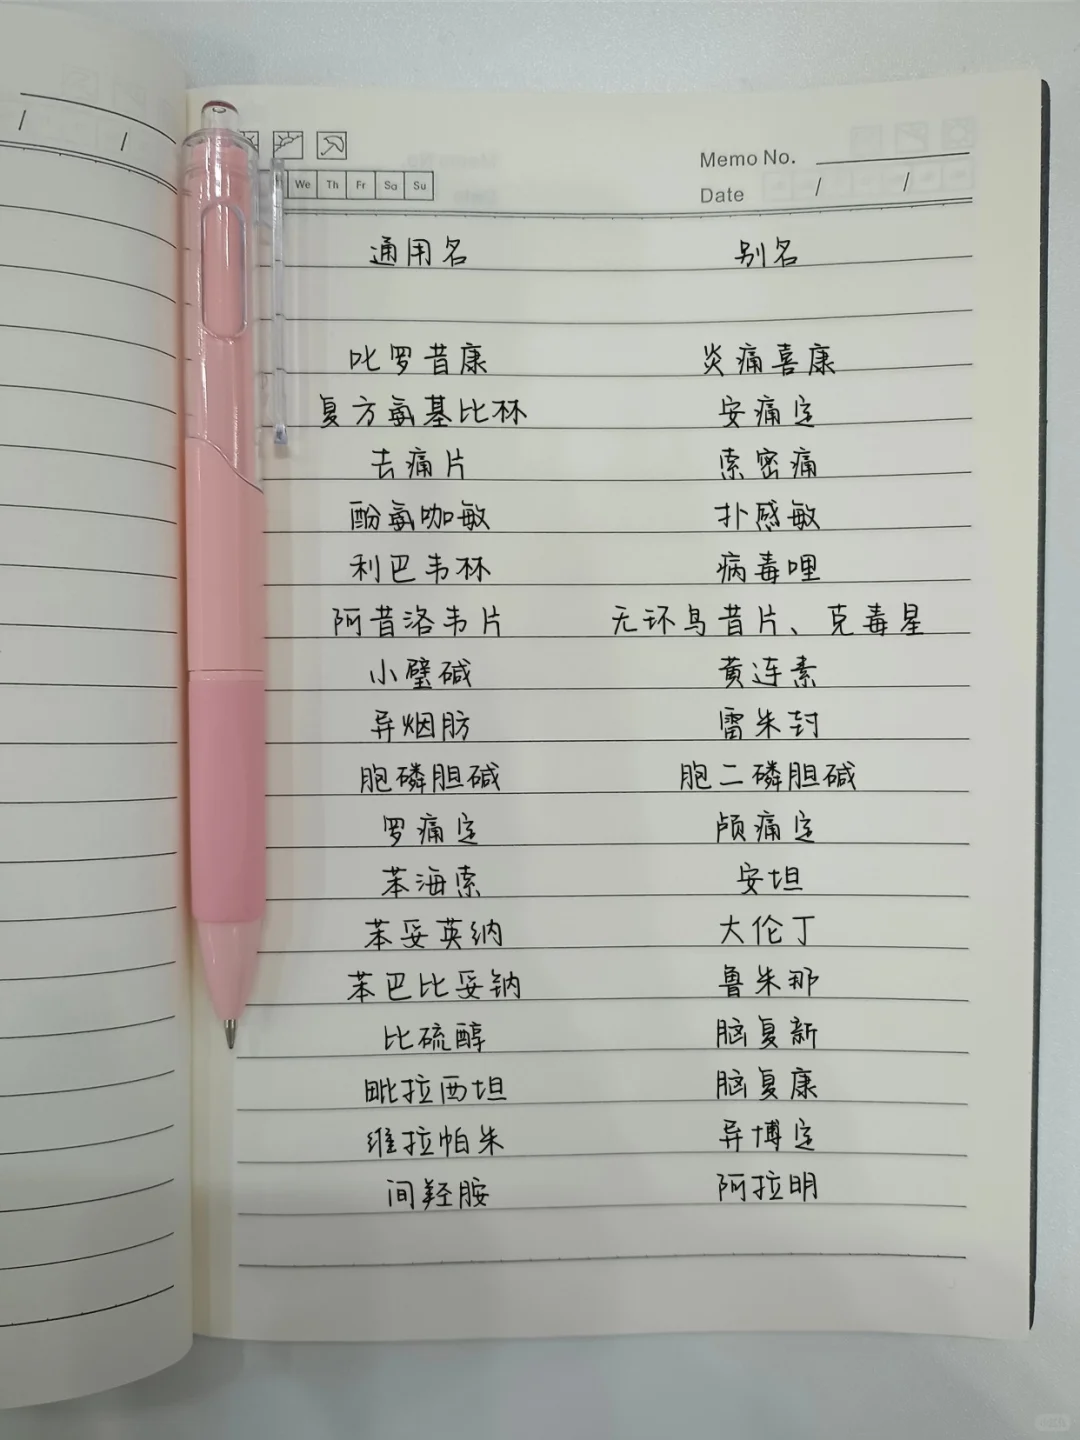 We Th Fr Sa Su
Memo No.
Date / /
通用名 别名
吡罗昔康 炎痛喜康
复方氨基比林 安痛定
去痛片 索密痛
酚氨咖敏 扑感敏
利巴韦林 病毒唑
阿昔洛韦片 无环鸟昔片、克毒星
小檗碱 黄连素
异烟肼 雷米封
胞磷胆碱 胞二磷胆碱
罗痛定 颅痛定
苯海索 安坦
苯妥英纳 大伦丁
苯巴比妥钠 鲁米那
比硫醇 脑复新
吡拉西坦 脑复康
维拉帕米 异博定
间羟胺 阿拉明